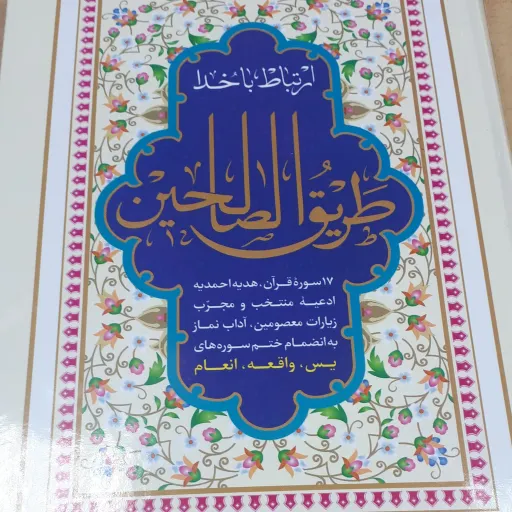 ارتباط با خدا
طریق الصالحین
۱۷ سورهٔ قرآن، هدیه احمدیه
ادعیهٔ منتخب و مجرّب
زیارات معصومین، آداب نماز
به انضمام ختم سوره‌های
یس، واقعه، انعام